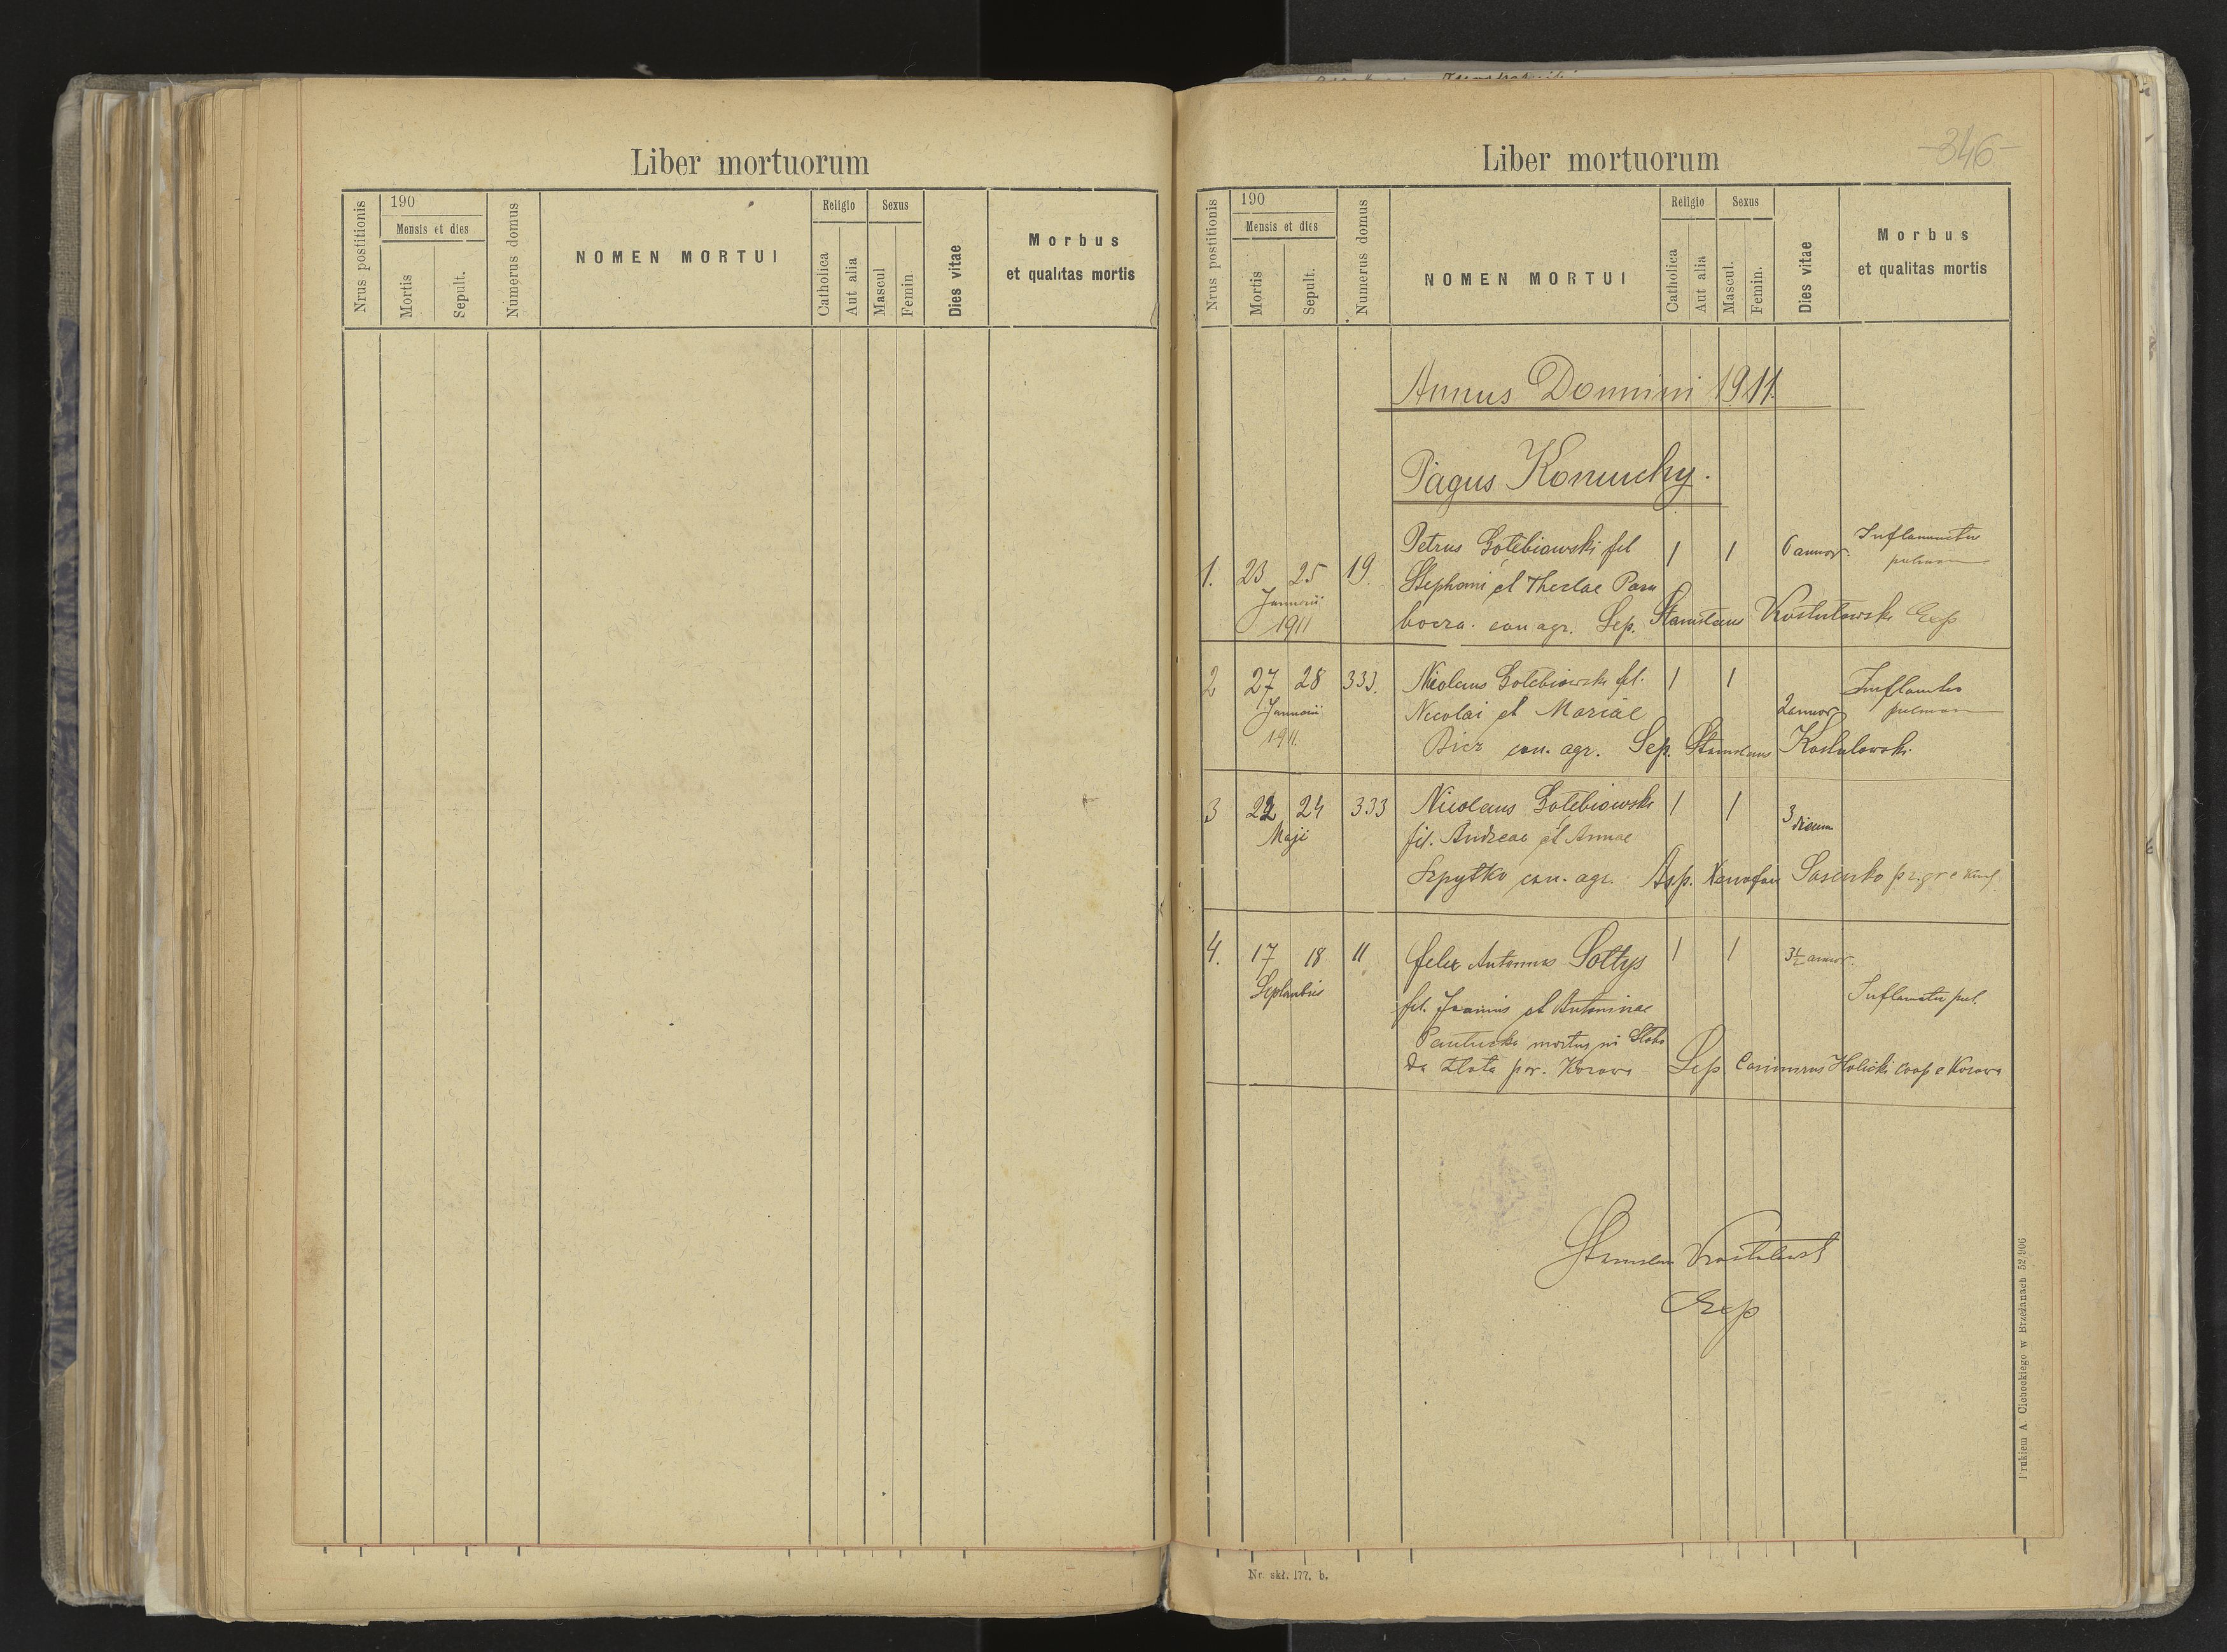 Liber mortuorum
Nrus postitionis
190
Mensis et dies
Mortis
Sepult.
Numerus domus
NOMEN MORTUI
Religio
Catholica
Aut alia
Sexus
Mascul
Femin
Dies vitae
Morbus
et qualitas mortis
Liber mortuorum
-346-
Nrus postitionis
190
Mensis et dies
Mortis
Sepult.
Numerus domus
NOMEN MORTUI
Religio
Catholica
Aut alia
Sexus
Mascul.
Femin.
Dies vitae
Morbus
et qualitas mortis
Annus Domini 1911.
Pagus Koniuchy.
1. 23 25 19. Petrus Gołębiowski fil 1 1 6 annor.
Januarii Stephani et Theclae
1911 con agr. Sep. Stanislaus Kostulowski Exp
2 27 28 333. Nicolaus Gołebiowski fil. 1 1 2 annor
Januarii Nicolai et Mariae
1911. con. agr. Sep. Stanislaus Kostulowski
3 22 24 333 Nicolaus Gołebiowski 1 1 3 dierum
Maji fil. Andreae et Annae
Szpytko con. agr. Xenofon Sasenko
4. 17 18 11 Felix Antonius Sołtys 1 1 3½ annor.
Septembris fil. Joannis et Antoninae
Pawlucka Słobo
da złota par. Kozowa Sep Casimirus Holicki coop e Kozowa
Exp
Drukiem A. Cichockiego w Brzeżanach 52/906
Nr. skł. 177. b.